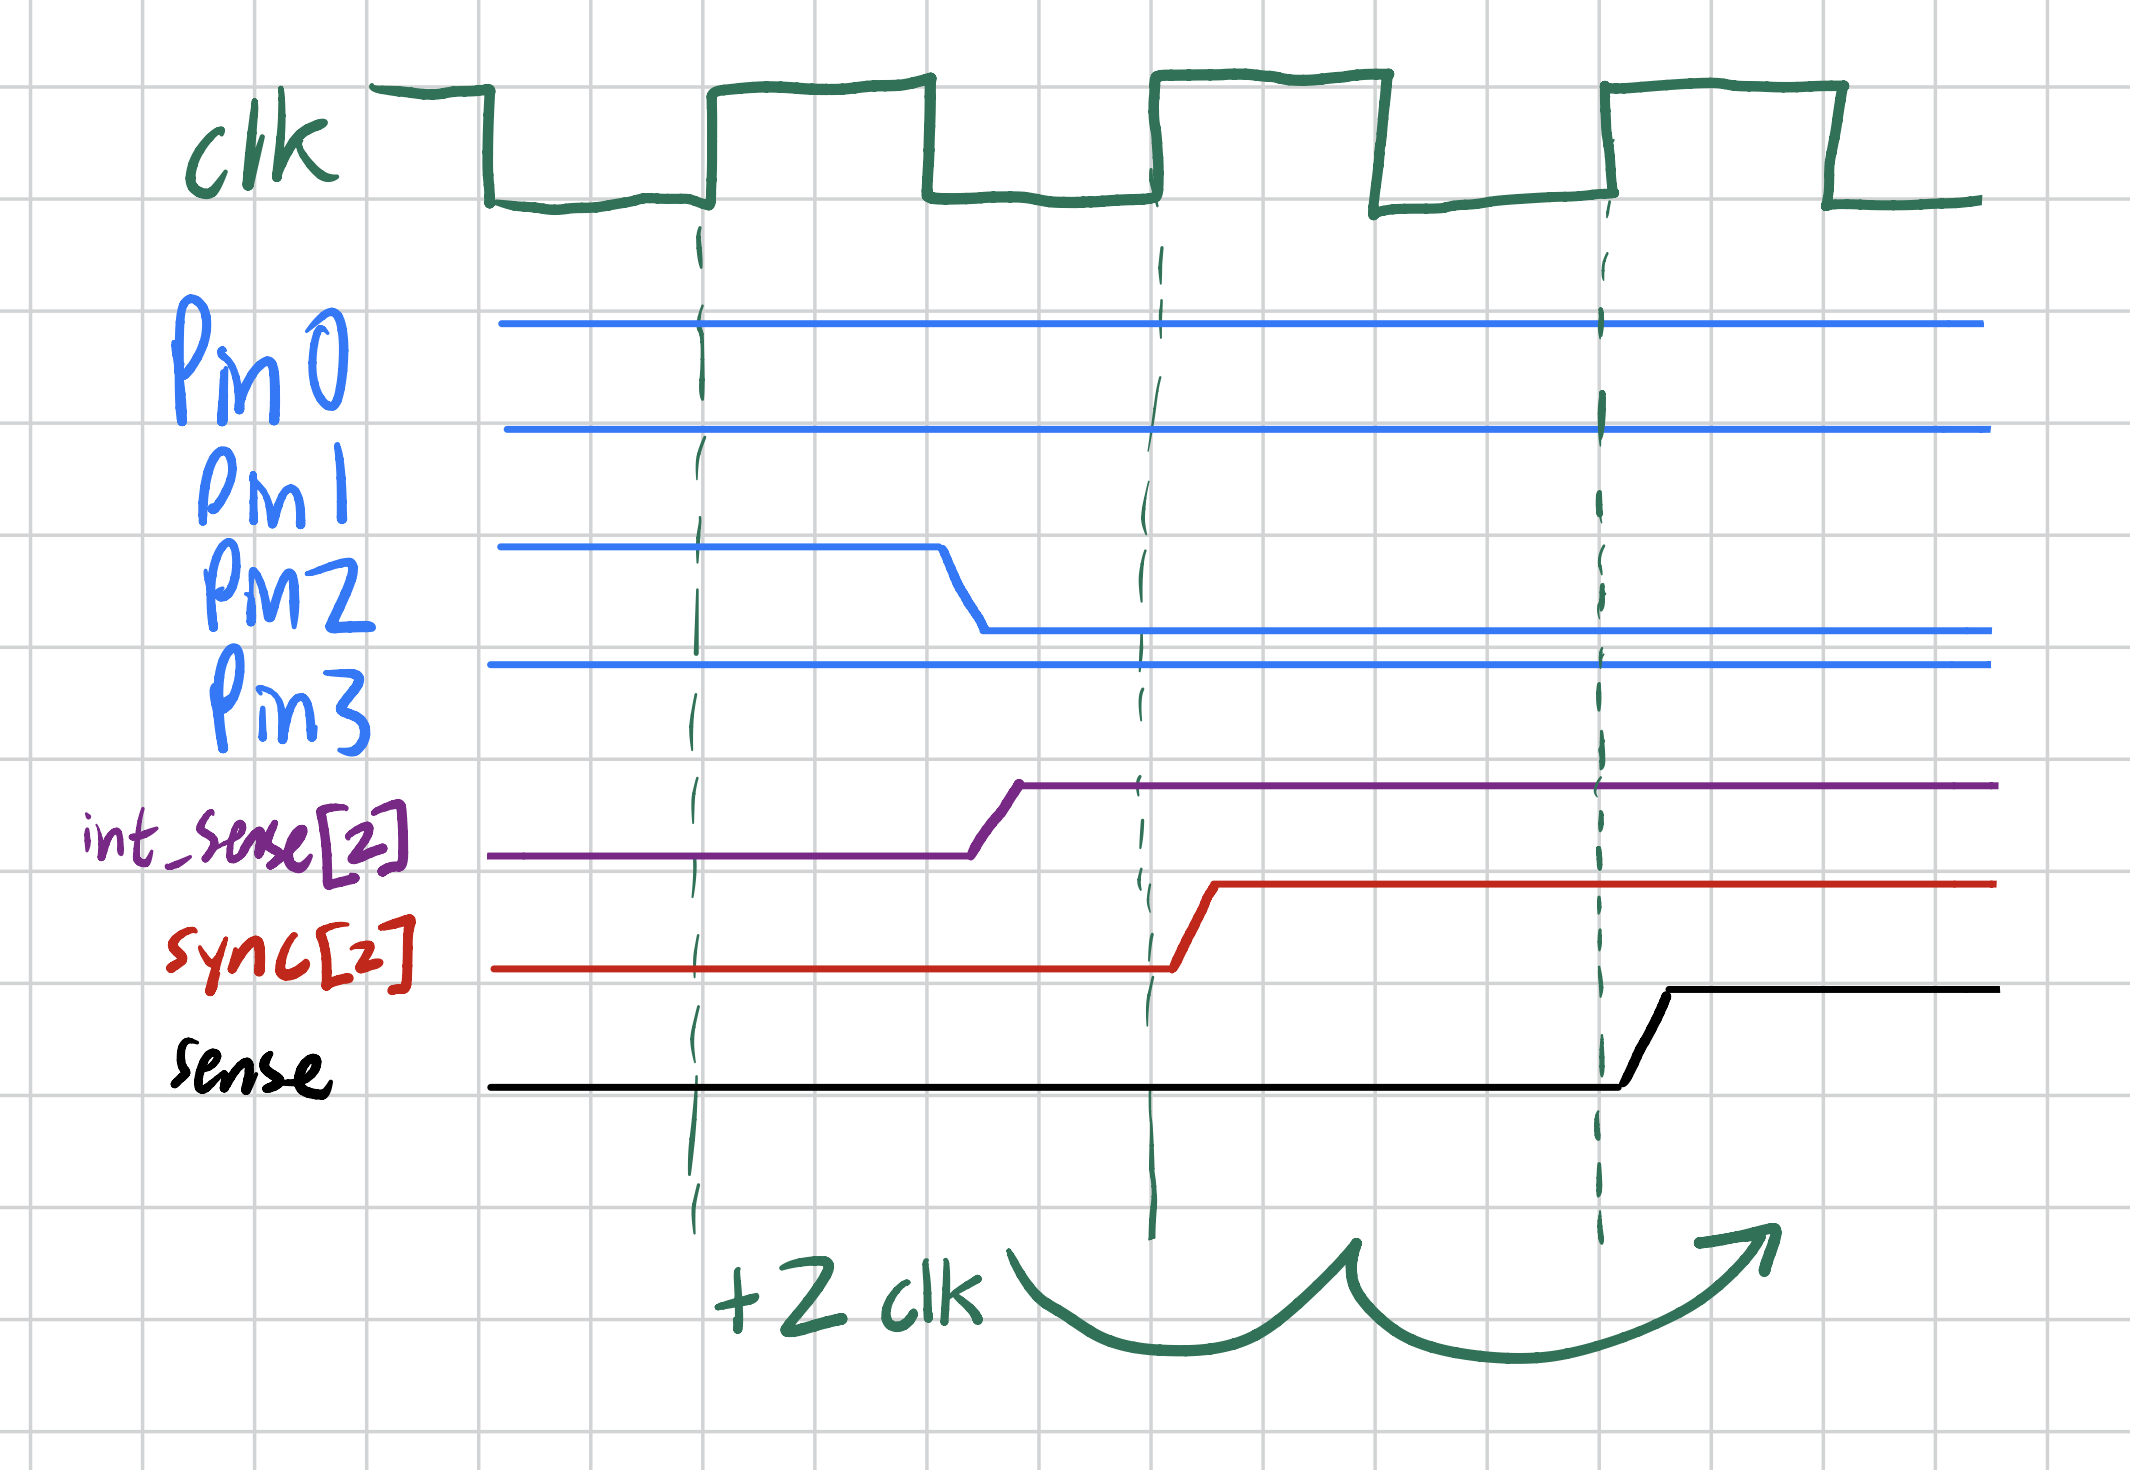 clk
Pin0
Pin1
Pin2
Pin3
int_sense[2]
sync[2]
sense
+2 clk